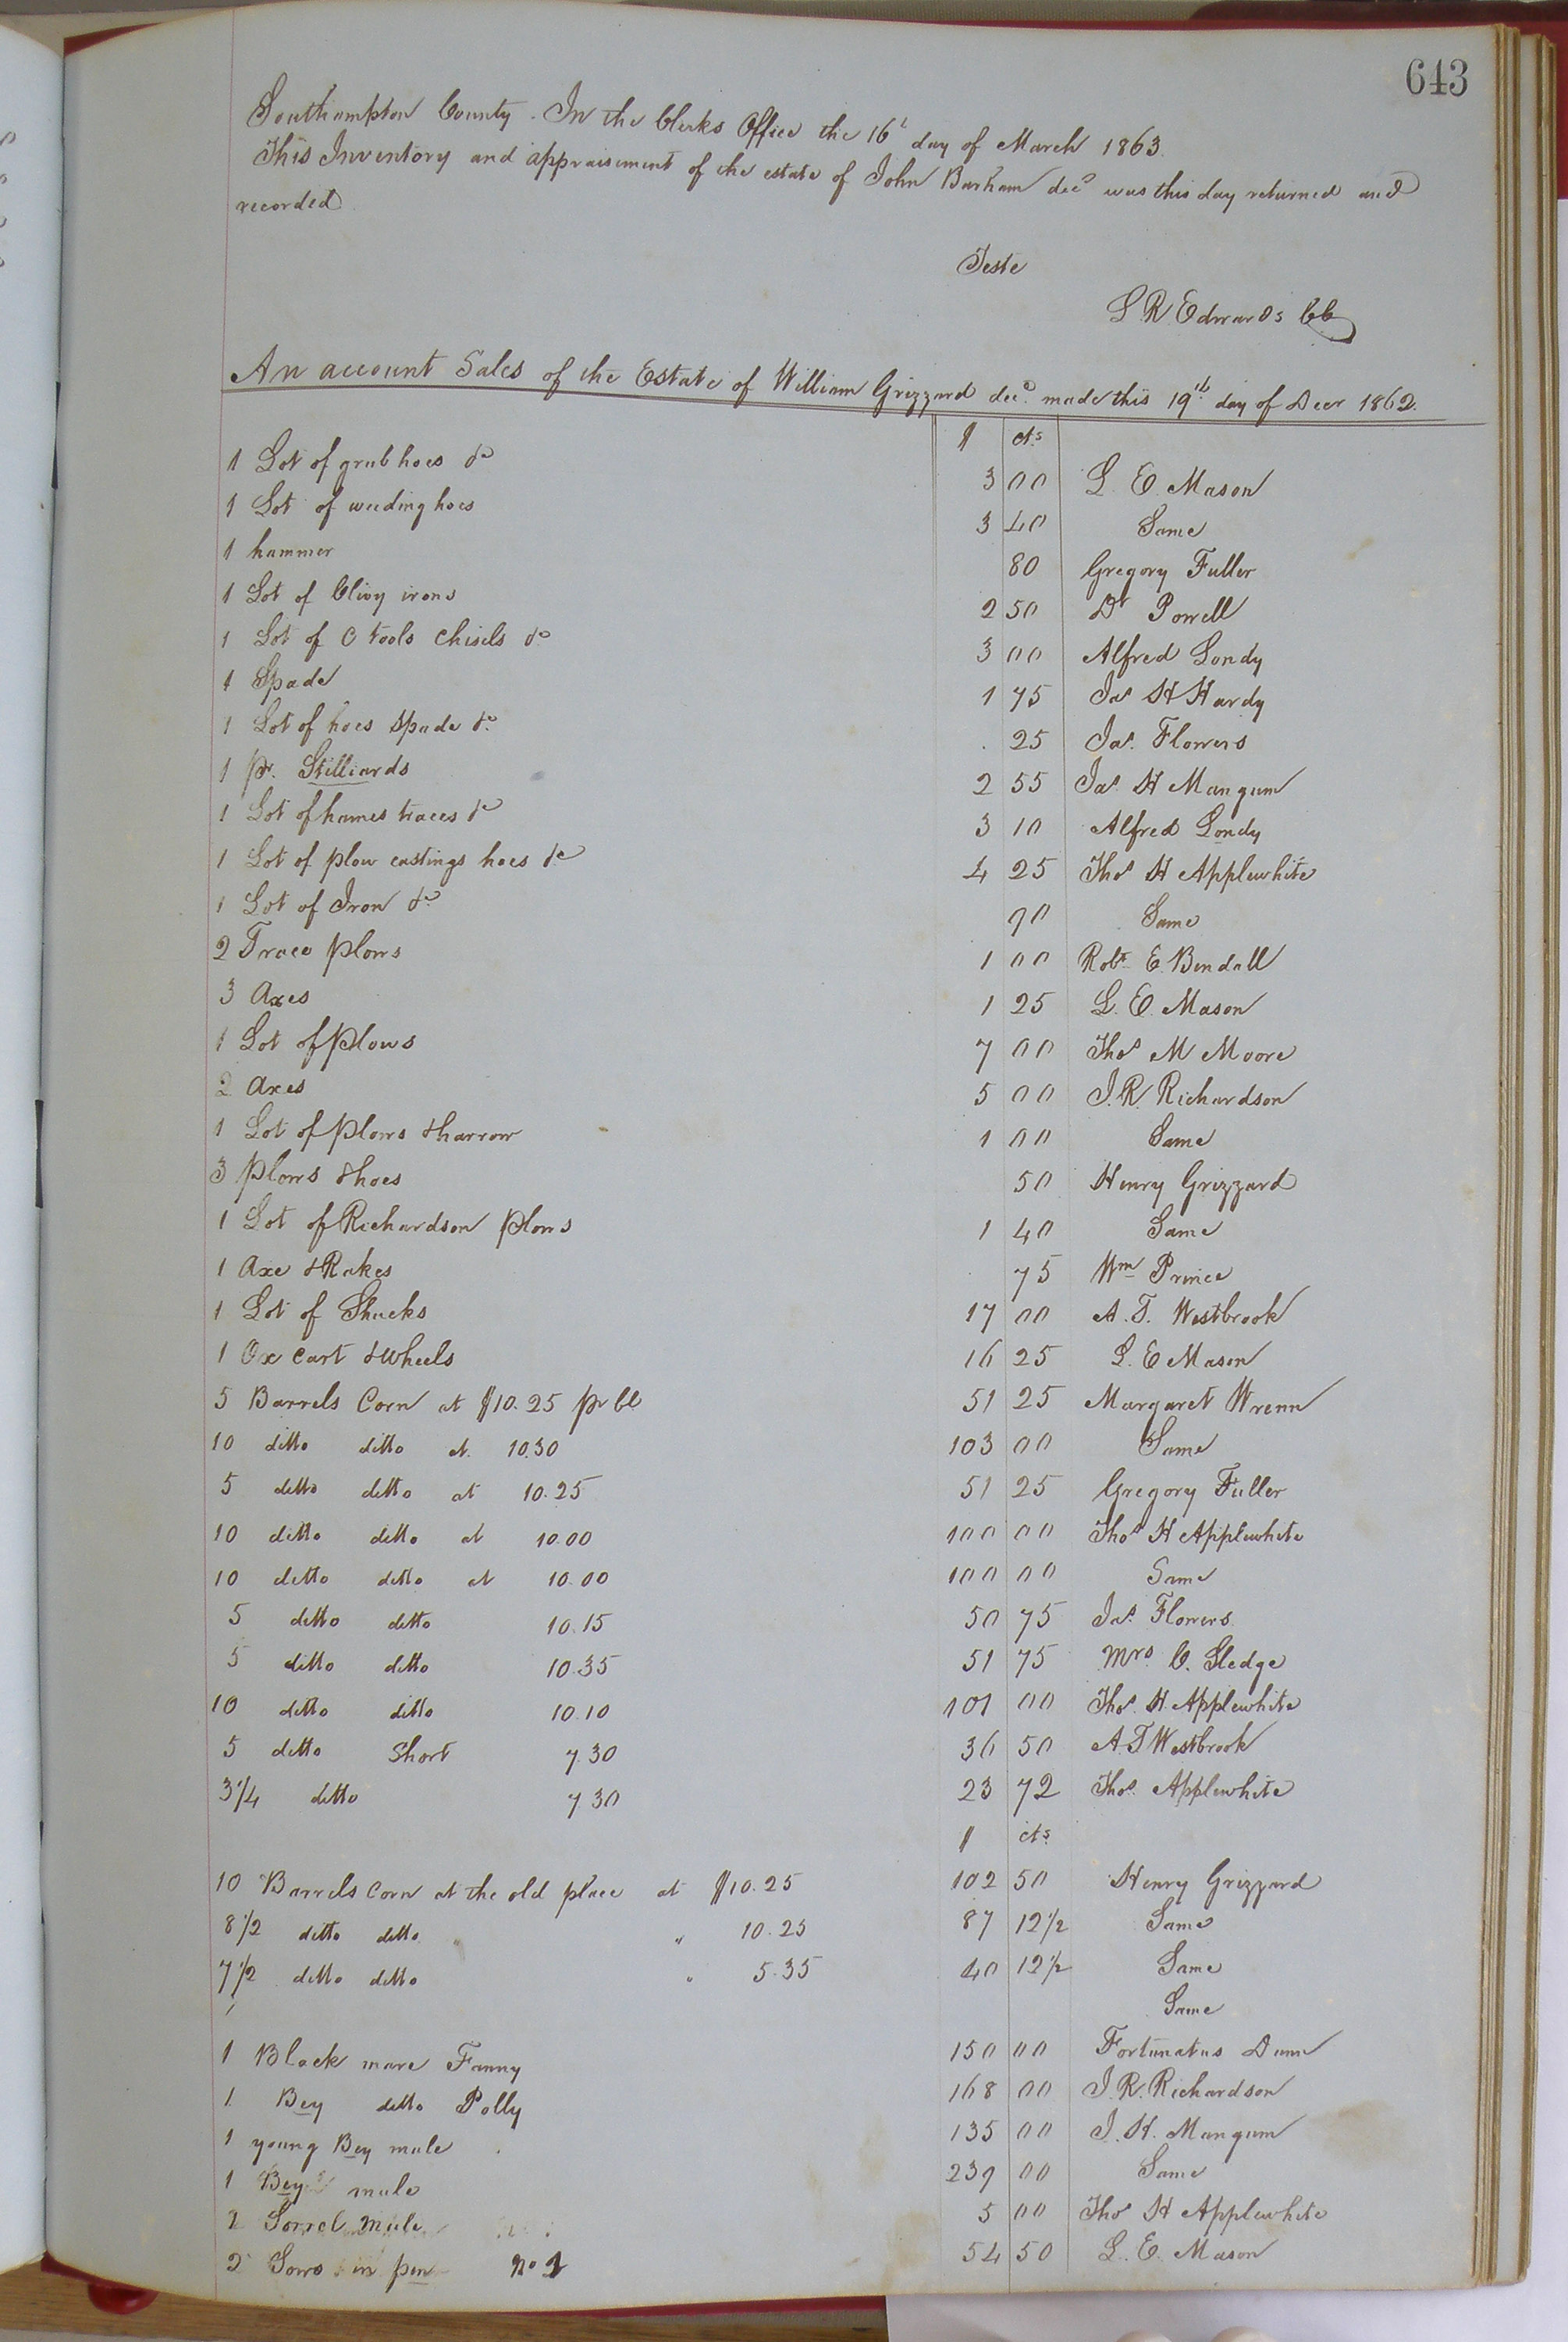 643
Southampton County. In the Clerks Office the 16t day of March 1863.
This Inventory and appraisement of the estate of John Barham decd was this day returned and
recorded
Teste
L R Edwards CC
An account Sales of the Estate of William Grizzard decd. made this 19th day of Decr 1862.
$ cts
1 Lot of grub hoes &c 3 00 L. E. Mason
1 Lot of weeding hoes 3 40 Same
1 hammer 80 Gregory Fuller
1 Lot of Clivy irons 2 50 Dr Powell
1 Lot of C tools chisels &c 3 00 Alfred Londy
1 Spade 1 75 Jas H Hardy
1 Lot of hoes Spade &c. 25 Jas. Flowers
1 pr. Stilliards 2 55 Jas H Mangum
1 Lot of hames traces &c 3 10 Alfred Londy
1 Lot of plow castings hoes &c 4 25 Thos H Applewhite
1 Lot of Iron &c. 90 Same
2 Trace plows 1 00 Robt. E. Bendall
3 Axes 1 25 L. E. Mason
1 Lot of plows 7 00 Thos M Moore
2 Axes 5 00 J. R. Richardson
1 Lot of plows & harrow 1 00 Same
3 plows & hoes 50 Henry Grizzard
1 Lot of Richardson plows 1 40 Same
1 Axe & Rakes 75 Wm Prince
1 Lot of Shucks 17 00 A. T. Westbrook
1 Ox cart & wheels 16 25 L. E Mason
5 Barrels Corn at $10.25 pr bl 51 25 Margaret Wrenn
10 ditto ditto at 10.30 103 00 Same
5 ditto ditto at 10.25 51 25 Gregory Fuller
10 ditto ditto at 10.00 100 00 Thos H Applewhite
10 ditto ditto at 10.00 100 00 Same
5 ditto ditto 10.15 50 75 Jas. Flowers
5 ditto ditto 10.35 51 75 Mrs. C. Sledge
10 ditto ditto 10.10 101 00 Thos. H. Applewhite
5 ditto Short 7.30 36 50 A. T Westbrook
3 1/4 ditto 7.30 23 72 Thos. Applewhite
$ cts
10 Barrels Corn at the old place at $10.25 102 50 Henry Grizzard
8 1/2 ditto ditto " 10.25 87 12 1/2 Same
7 1/2 ditto ditto " 5.35 40 12 1/2 Same
Same
1 Black mare Fanny 150 00 Fortunatus Dunn
1 Bey ditto Polly 168 00 J. R. Richardson
1 young Bey mule 135 00 J. H. Mangum
1 Bey mule 239 00 Same
Sorrel Mule 5 00 Thos H Applewhite
2 Sows in pen no 1 54 50 L. E. Mason